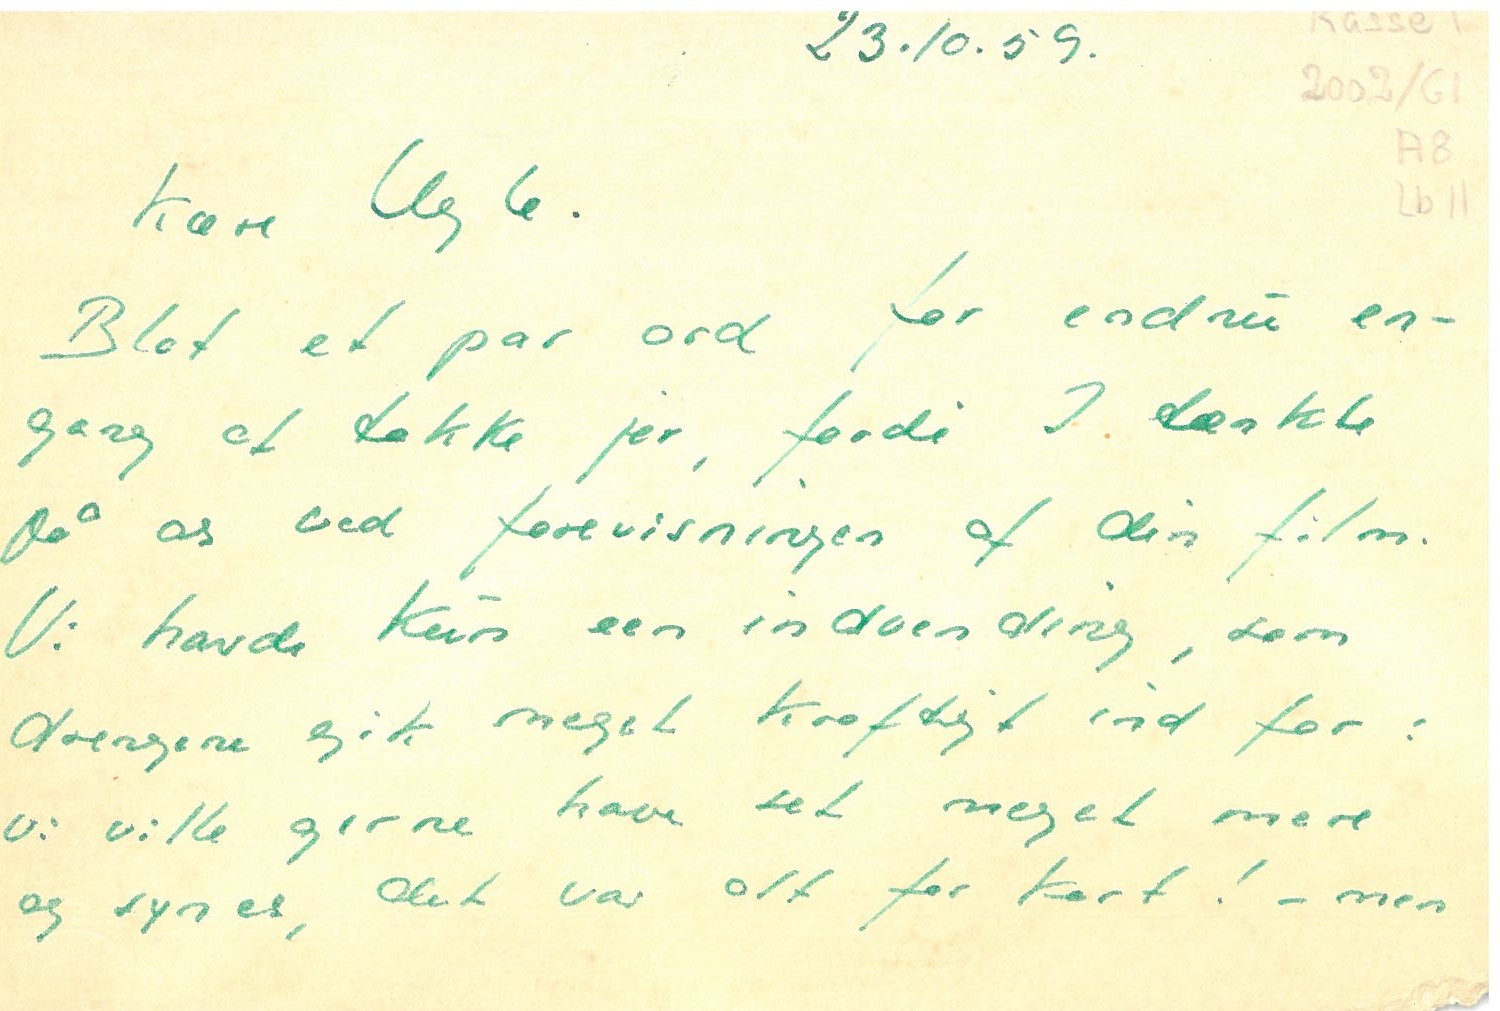 23.10.59.
Kasse 1
2002/61
A8
Lb 11
Kære Ugle.
Blot et par ord for endnu en-
gang at takke jer, fordi I tænkte
på os ved forevisningen af din film.
Vi havde kun een indvending, som
drengene gik meget kraftigt ind for:
vi ville gerne have set meget mere
og synes, det var alt for kort! - men